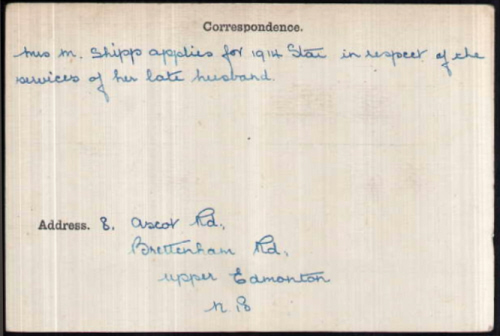 Correspondence.
Mrs M. Shipp applies for 1914 Star in respect of the
services of her late husband.
Address. 8, Ascot Rd.,
Brettenham Rd,
Upper Edmonton
N 18